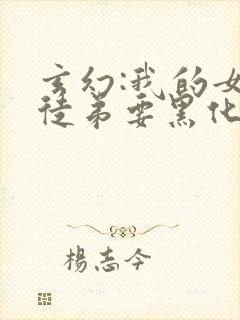 玄幻:我的女
徒弟要黑化
楊志今